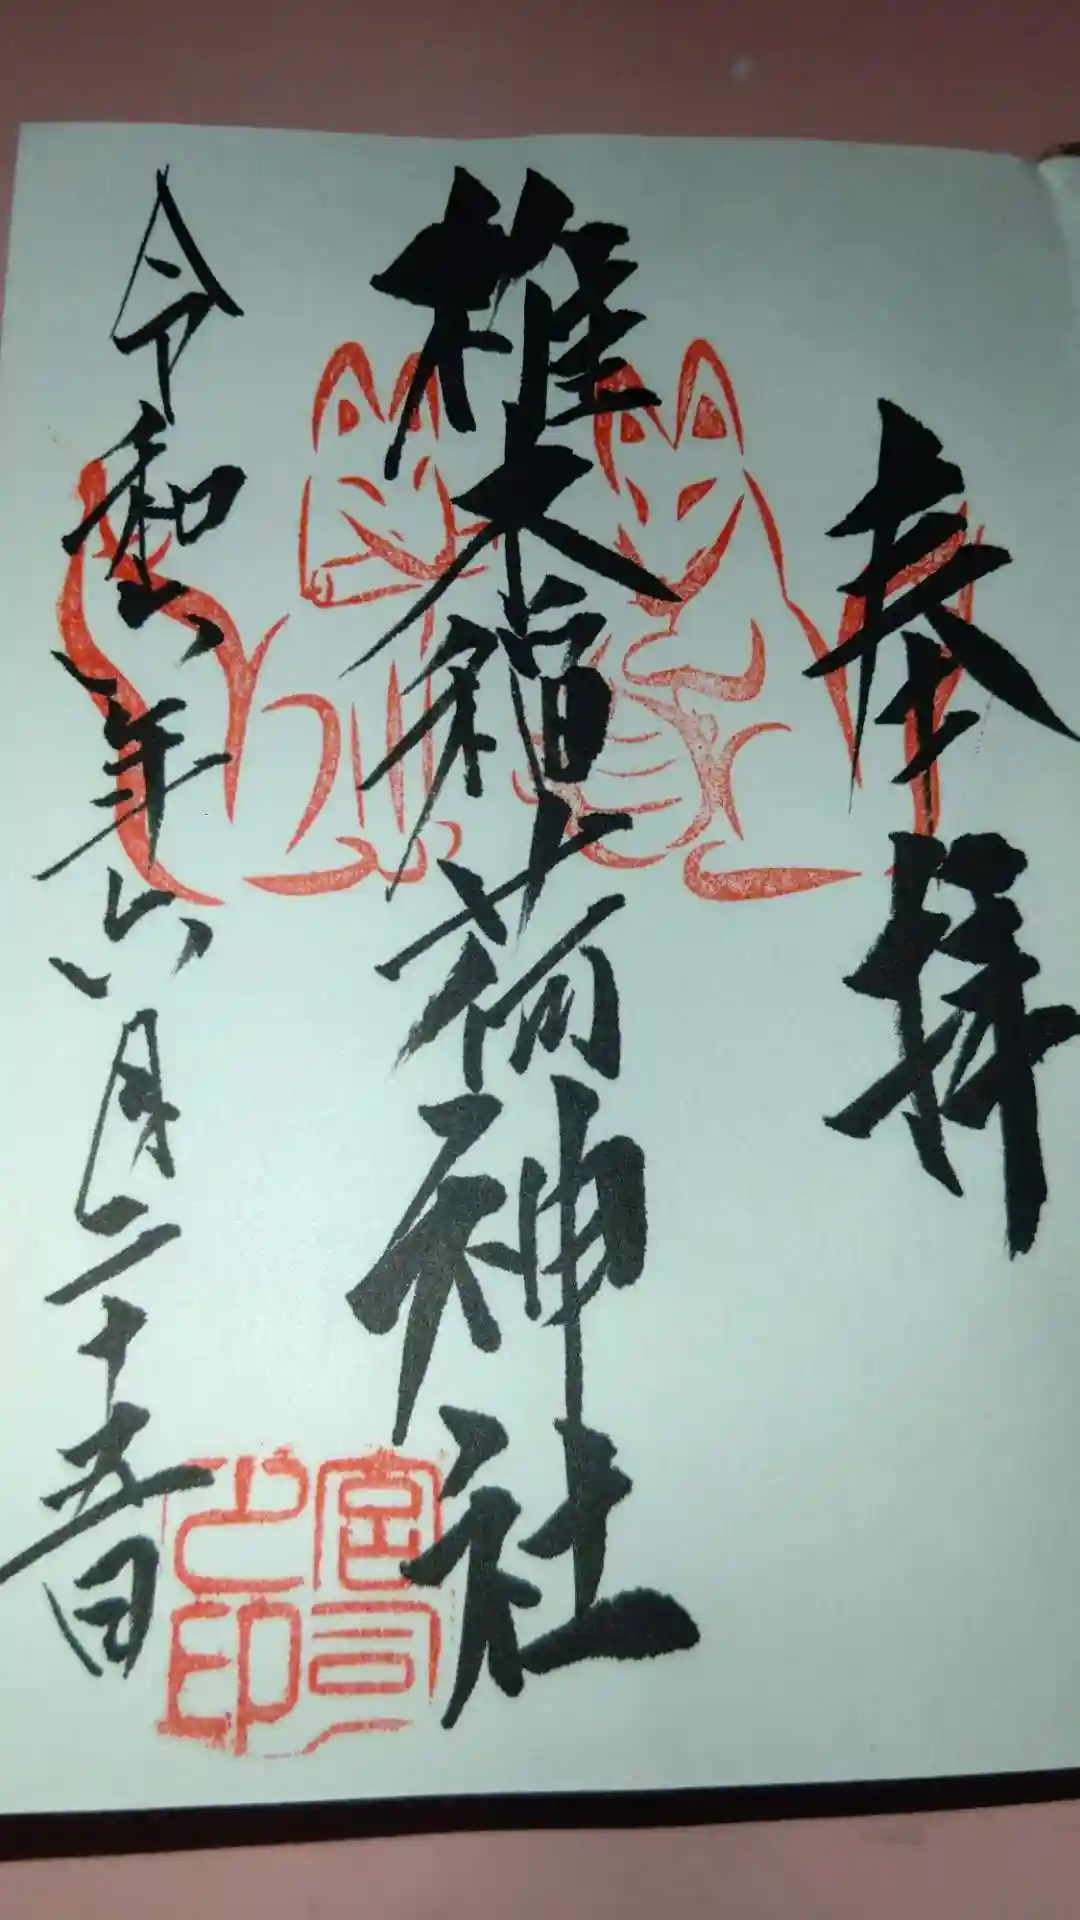 奉拝
椎木稲荷神社
令和六年六月二十五日
宮司之印